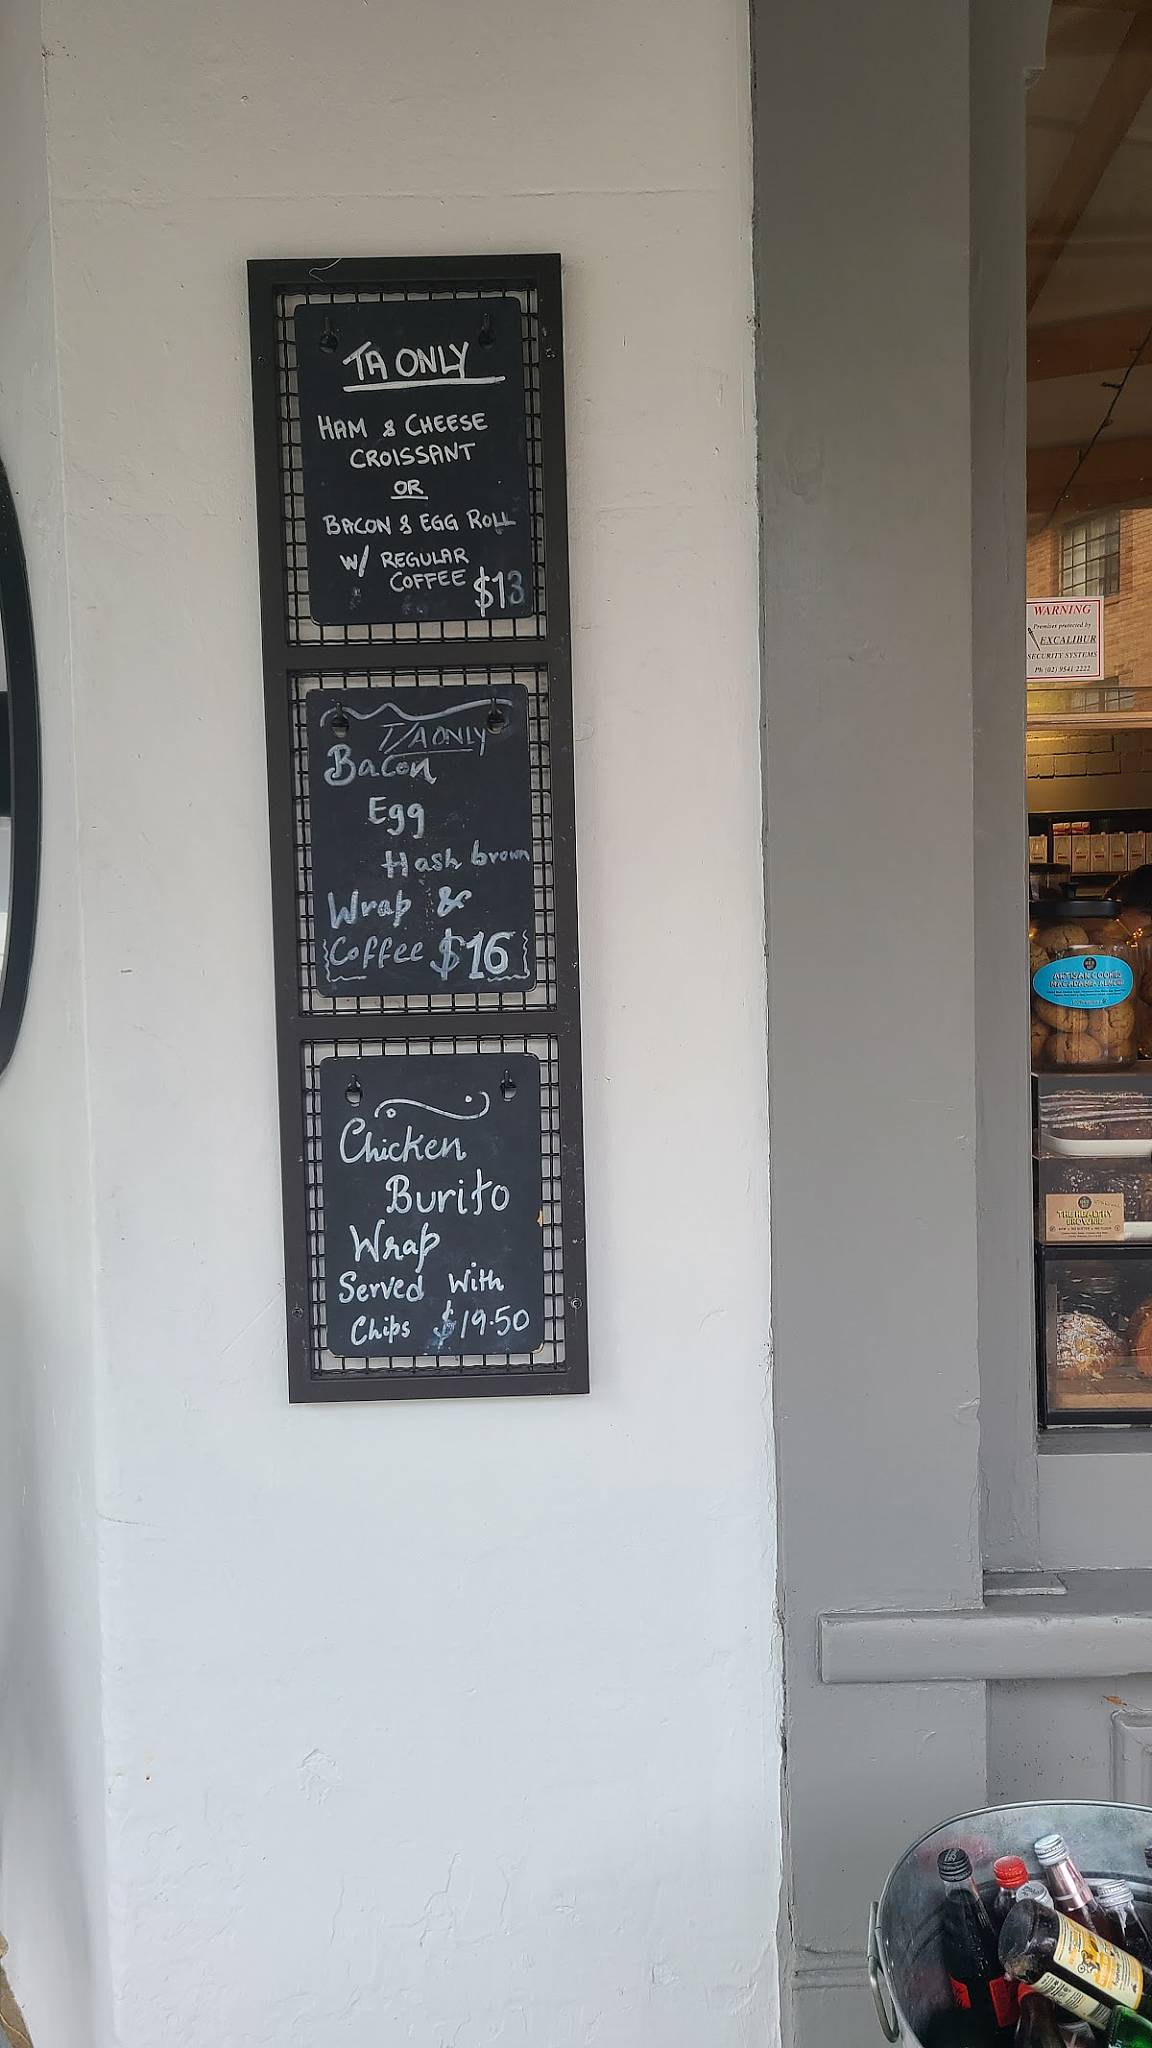 TA ONLY
HAM & CHEESE
CROISSANT
OR
BACON & EGG ROLL
W/ REGULAR
COFFEE $13
T/A ONLY
Bacon
Egg
Hash brown
Wrap &
Coffee $16
Chicken
Burito
Wrap
Served With
Chips $19.50
WARNING
Premises protected by
EXCALIBUR
SECURITY SYSTEMS
Ph (02) 9541 2222
ARTISAN COOKIE
THE HEALTHY
BROWNIE